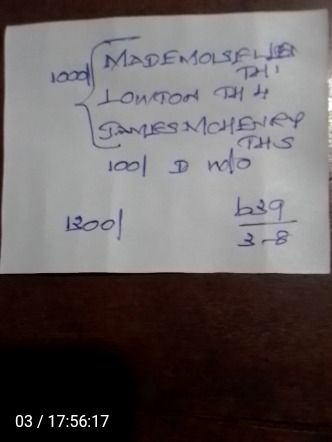 1000/
MADEMOISELLE
TH 1
LOWTON TH 4
JAMES MCHENRY
TH 5
100/ D
1300/
639
3-8
03 / 17:56:17